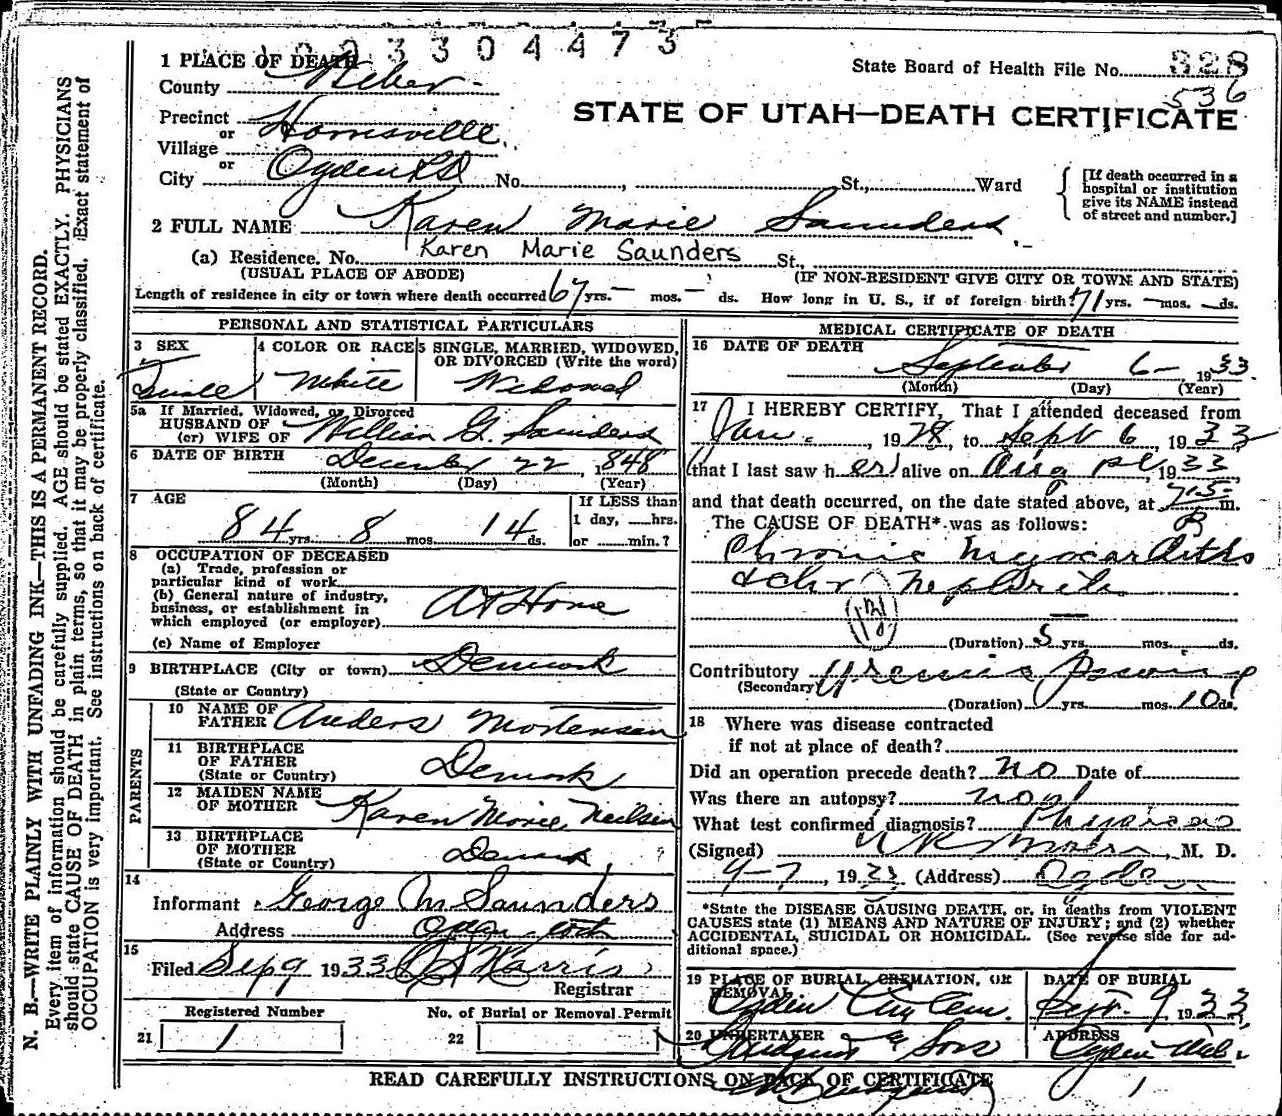 1003304473
1 PLACE OF DEATH
County Weber
State Board of Health File No. 328
536
STATE OF UTAH—DEATH CERTIFICATE
Precinct Harrisville
or
Village
or
City Ogden No. , St., Ward
[If death occurred in a
hospital or institution
give its NAME instead
of street and number.]
2 FULL NAME Karen Marie Saunders
(a) Residence. No. Karen Marie Saunders St.,
(USUAL PLACE OF ABODE) (IF NON-RESIDENT GIVE CITY OR TOWN AND STATE)
Length of residence in city or town where death occurred 67 yrs. — mos. — ds. How long in U. S., if of foreign birth? 71 yrs. — mos. — ds.
PERSONAL AND STATISTICAL PARTICULARS
3 SEX 4 COLOR OR RACE 5 SINGLE, MARRIED, WIDOWED,
OR DIVORCED (Write the word)
White Widowed
5a If Married, Widowed, or Divorced
HUSBAND OF
(or) WIFE OF William G. Saunders
6 DATE OF BIRTH December 22, 1848
(Month) (Day) (Year)
7 AGE If LESS than
84 yrs. 8 mos. 14 ds. 1 day, hrs.
or min.?
8 OCCUPATION OF DECEASED
(a) Trade, profession or
particular kind of work
(b) General nature of industry,
business, or establishment in
which employed (or employer) At Home
(c) Name of Employer
9 BIRTHPLACE (City or town) Denmark
(State or Country)
PARENTS
10 NAME OF
FATHER Anders Mortensen
11 BIRTHPLACE
OF FATHER
(State or Country) Denmark
12 MAIDEN NAME
OF MOTHER Karen Marie Neilsen
13 BIRTHPLACE
OF MOTHER
(State or Country) Denmark
14
Informant George M Saunders
Address Ogden Utah
15
Filed Sep 9 1933 Harris
Registrar
Registered Number No. of Burial or Removal Permit
21 1 22
MEDICAL CERTIFICATE OF DEATH
16 DATE OF DEATH
September 6— 1933
(Month) (Day) (Year)
17 I HEREBY CERTIFY, That I attended deceased from
Jan. , 1928, to Sept 6, 1933
that I last saw her alive on 1933
and that death occurred, on the date stated above, at 715 m.
The CAUSE OF DEATH* was as follows: P
Chronic Myocarditis
& chr Nephritis
(Duration) 5 yrs. mos. ds.
Contributory Uremic
(Secondary)
(Duration) yrs. mos. 10 ds.
18 Where was disease contracted
if not at place of death?
Did an operation precede death? no Date of
Was there an autopsy? no
What test confirmed diagnosis?
(Signed) , M. D.
9-7, 1933 (Address) Ogden
*State the DISEASE CAUSING DEATH, or, in deaths from VIOLENT
CAUSES state (1) MEANS AND NATURE OF INJURY; and (2) whether
ACCIDENTAL, SUICIDAL OR HOMICIDAL. (See reverse side for ad-
ditional space.)
19 PLACE OF BURIAL, CREMATION, OR
REMOVAL DATE OF BURIAL
Ogden City Cem. Sept. 9 1933
20 UNDERTAKER ADDRESS
& Sons Ogden
READ CAREFULLY INSTRUCTIONS ON BACK OF CERTIFICATE
N. B.—WRITE PLAINLY WITH UNFADING INK—THIS IS A PERMANENT RECORD.
Every item of information should be carefully supplied. AGE should be stated EXACTLY. PHYSICIANS
should state CAUSE OF DEATH in plain terms, so that it may be properly classified. Exact statement of
OCCUPATION is very important. See instructions on back of certificate.